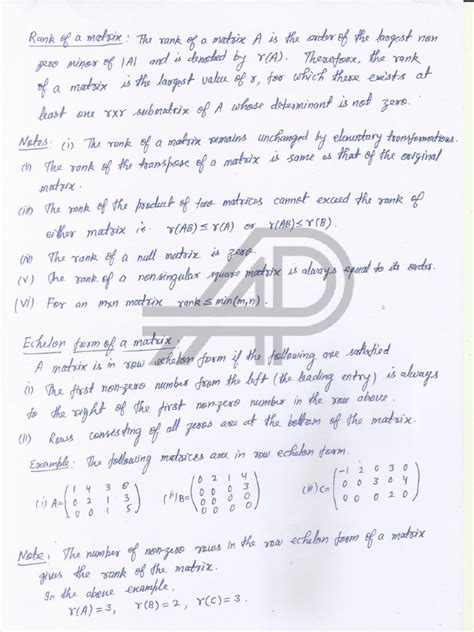 Rank of a matrix: The rank of a matrix A is the order of the largest non
zero minor of |A| and is denoted by r(A). Therefore, the rank
of a matrix is the largest value of r, for which there exists at
least one rxr submatrix of A whose determinant is not zero.
Notes: (i) The rank of a matrix remains unchanged by elementary transformations.
(ii) The rank of the transpose of a matrix is same as that of the original
matrix.
(iii) The rank of the product of two matrices cannot exceed the rank of
either matrix ie. r(AB) ≤ r(A) or r(AB) ≤ r(B).
(iv) The rank of a null matrix is zero.
(v) The rank of a nonsingular square matrix is always equal to its order.
(vi) For an mxn matrix rank ≤ min(m,n).
Echelon form of a matrix:
A matrix is in row echelon form if the following are satisfied
(i) The first non-zero number from the left (the leading entry) is always
to the right of the first non-zero number in the row above.
(ii) Rows consisting of all zeros are at the bottom of the matrix.
Example: The following matrices are in row echelon form.
1 4 3 8 0 2 1 4 -1 2 0 3 0
(i) A= 0 2 1 3 (ii) B= 0 0 0 3 (iii) C= 0 0 3 0 4
0 0 1 5 0 0 0 0 0 0 0 2 0
0 0 0 0
Note: The number of non-zero rows in the row echelon form of a matrix
gives the rank of the matrix.
In the above example,
r(A) = 3, r(B) = 2, r(C) = 3.